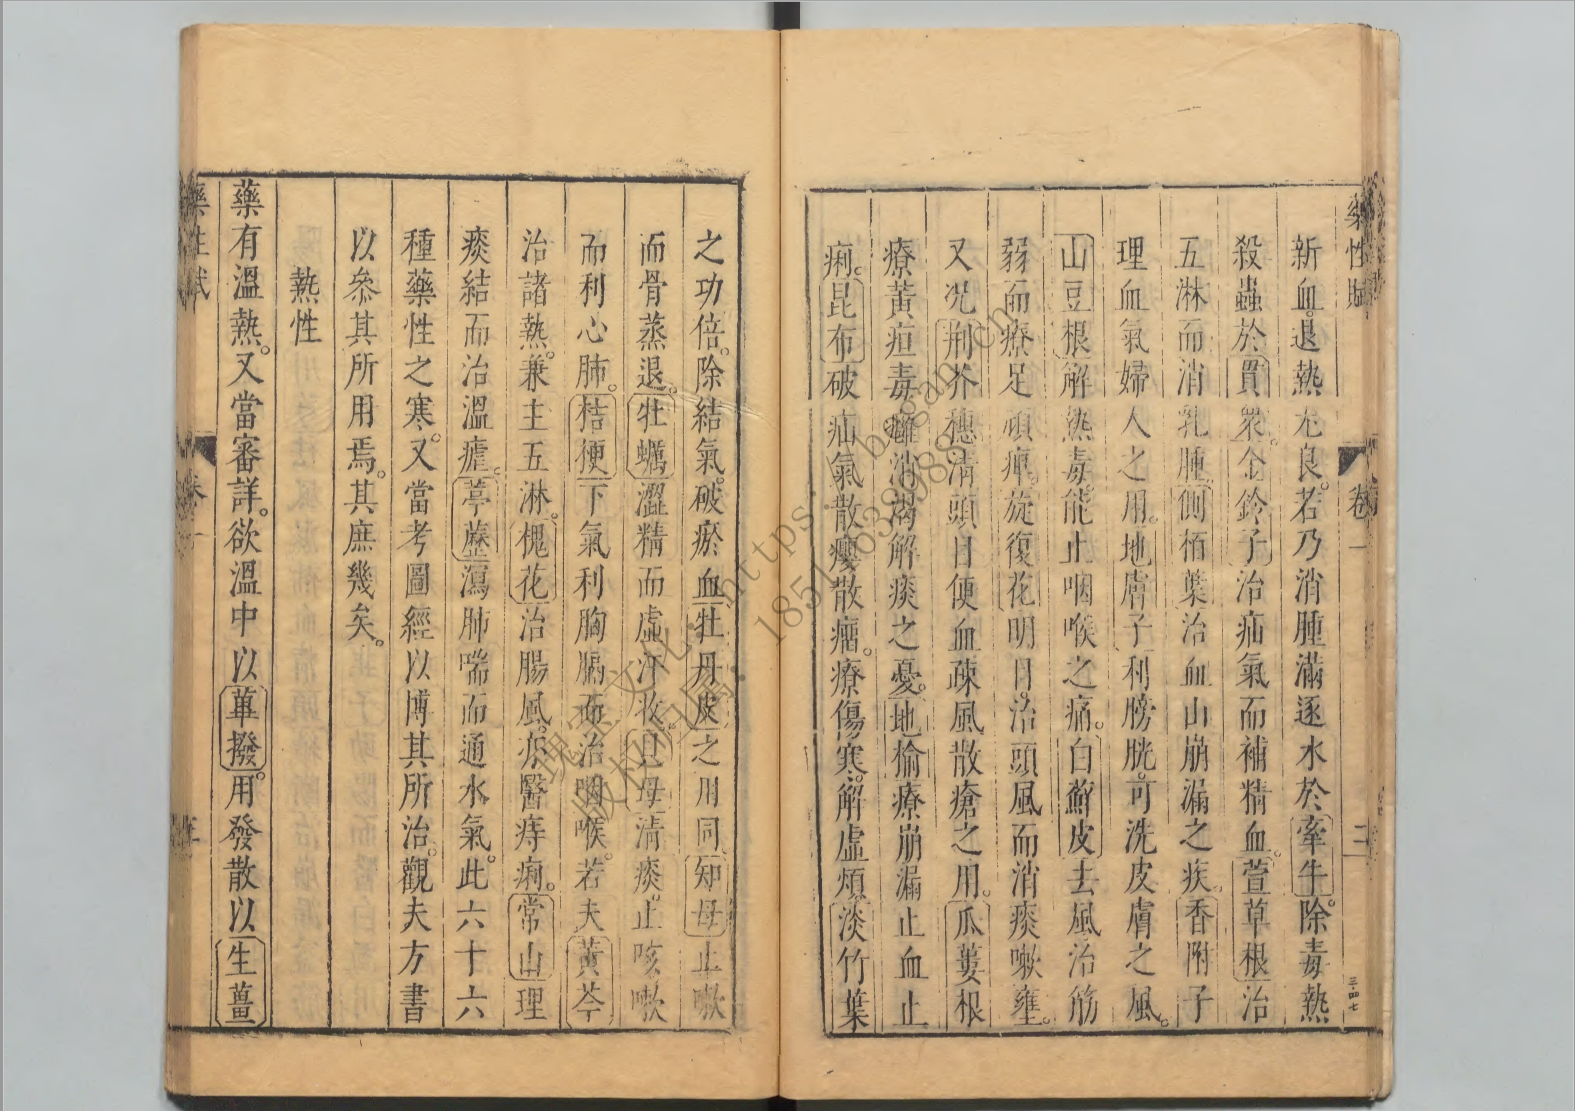 藥性賦 卷一 二
新血。退熱尤良。若乃消腫滿逐水於牽牛。除毒熱
殺蟲於貫衆。金鈴子治疝氣而補精血。萱草根治
五淋而消乳腫。側栢葉治血山崩漏之疾。香附子
理血氣婦人之用。地膚子利膀胱。可洗皮膚之風。
山豆根解熱毒能止咽喉之痛。白蘚皮去風治筋
弱而療足頑痺。旋復花明目。治頭風而消痰嗽壅。
又況荆芥穗清頭目便血疎風散瘡之用。瓜蔞根
療黃疸毒癰消渴解痰之憂。地榆療崩漏止血止
痢。昆布破疝氣散癭散瘤。療傷寒。解虛煩淡竹葉
之功倍。除結氣。破瘀血牡丹皮之用同。知母止嗽
而骨蒸退。牡蠣澀精而虛汗收。貝母清痰。止咳嗽
而利心肺。桔梗下氣利胸膈而治咽喉。若夫黃芩
治諸熱。兼主五淋。槐花治腸風。亦醫痔痢。常山理
痰結而治溫瘧。葶藶瀉肺喘而通水氣。此六十六
種藥性之寒。又當考圖經以博其所治。觀夫方書
以參其所用焉。其庶幾矣。
熱性
藥有溫熱。又當審詳。欲溫中以蓽撥。用發散以生薑
藥性賦 卷一 三
三.四七